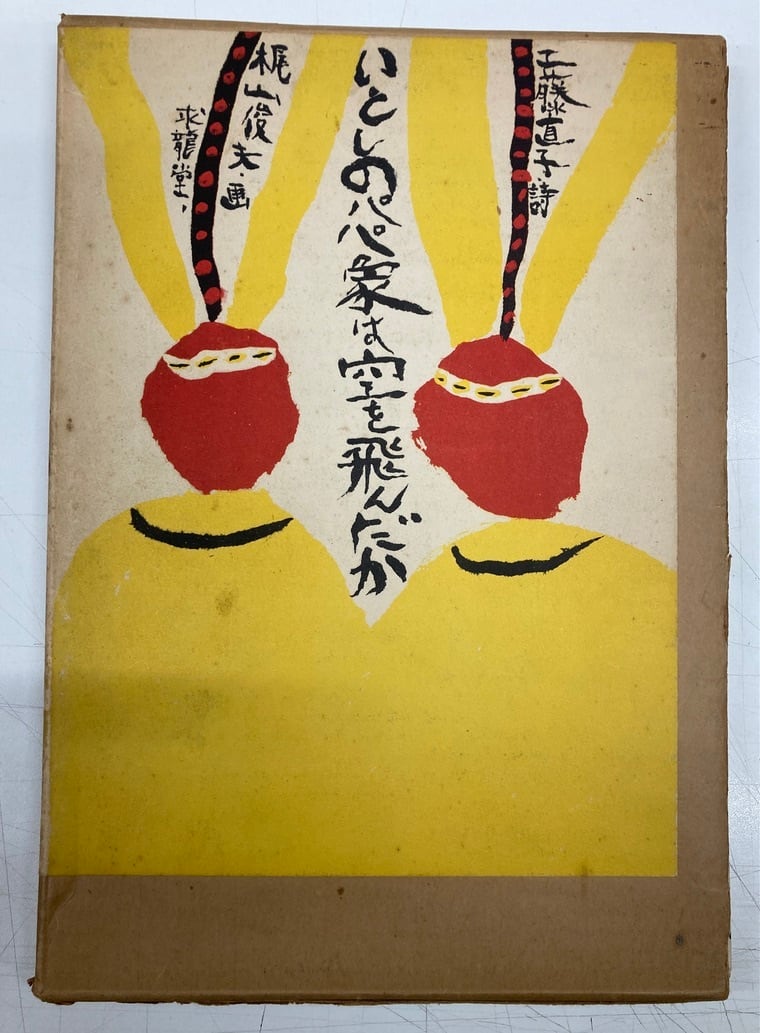 工藤直子・詩
いとしのパパ象は空を飛んだか
梶山俊夫・画
求龍堂